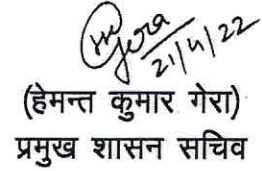 Gera
21/4/22
(हेमन्त कुमार गेरा)
प्रमुख शासन सचिव